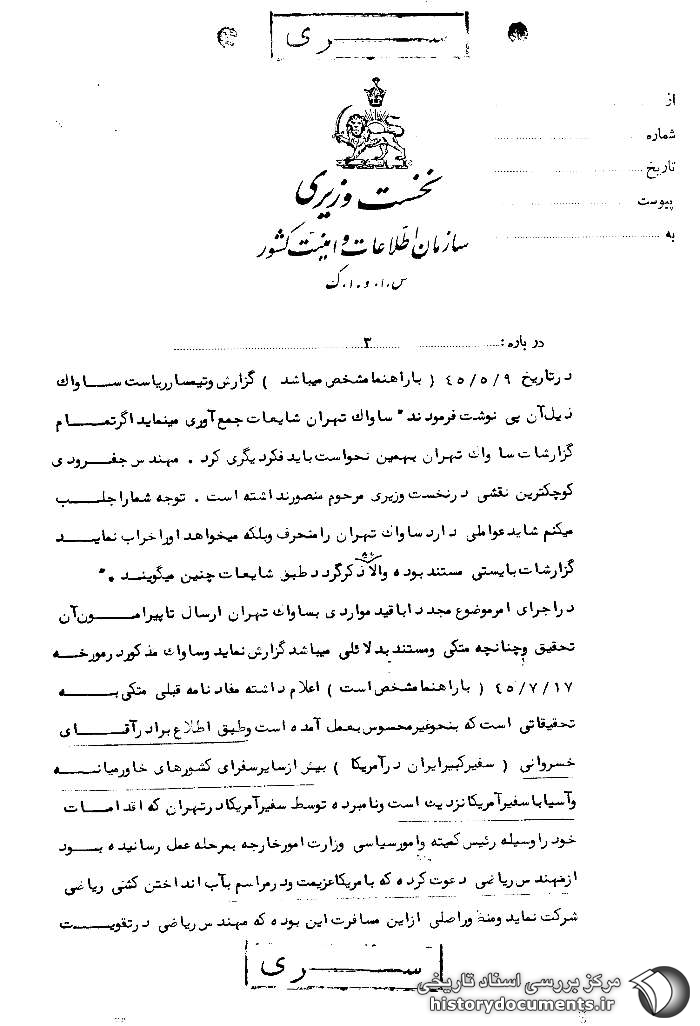 ســــــری
از
شماره
تاریخ
پیوست
به
نخست وزیری
سازمان اطلاعات و امنیت کشور
س.ا.و.ا.ک
درباره : ۳
درتاریخ ۴۵/۵/۹ ( باراهنما مشخص میباشد ) گزارش وتیمسار ریاست ســـاواك
ذیل آن پی نوشت فرمودند " ساواك تهران شایعات جمع آوری مینماید اگر تمـــام
گزارشات سا واك تهران بهمین نحو است باید فکر دیگری کرد . مهندس جفرودی
کوچکترین نقشی درنخست وزیری مرحوم منصور نداشته است . توجه شمارا جلــب
میکنم شاید عواملی دارد ساواك تهران را منحرف وبلکه میخواهد اورا خراب نمایــد
گزارشات بایستی مستند بوده والا ذکرگردد طبق شایعات چنین میگوینــد . "
دراجرای امر موضوع مجددا باقید مواردی بساواك تهران ارسال تا پیرامـــون آن
تحقیق وچنانچه متکی ومستند بدلائلی میباشد گزارش نماید وساواك مذکور درمورخــه
۴۵/۷/۱۷ ( باراهنما مشخص است ) اعلام داشته مفاد نامه قبلی متکی بــــه
تحقیقاتی است که بنحو غیر محسوس بعمل آمده است وطبق اطلاع برادر آقـــای
خسروانی ( سفیرکبیر ایران درآمریکا ) بیش از سایر سفرای کشورهای خاورمیانـــه
وآسیا با سفیر آمریکا نزدیك است ونامبرده توسط سفیر آمریکا درتهران که اقدامـات
خود را وسیله رئیس کمیته وامور سیاسی وزارت امورخارجه بمرحله عمل رسانیده بــود
ازمهندس ریاضی دعوت کرده که بامریکا عزیمت ودرمراسم بآب انداختن کشتی ریاضی
شرکت نماید ومنظور اصلی ازاین مسافرت این بوده که مهندس ریاضی درتقویـــت
ســــــری
مرکز بررسی اسناد تاریخی
historydocuments.ir